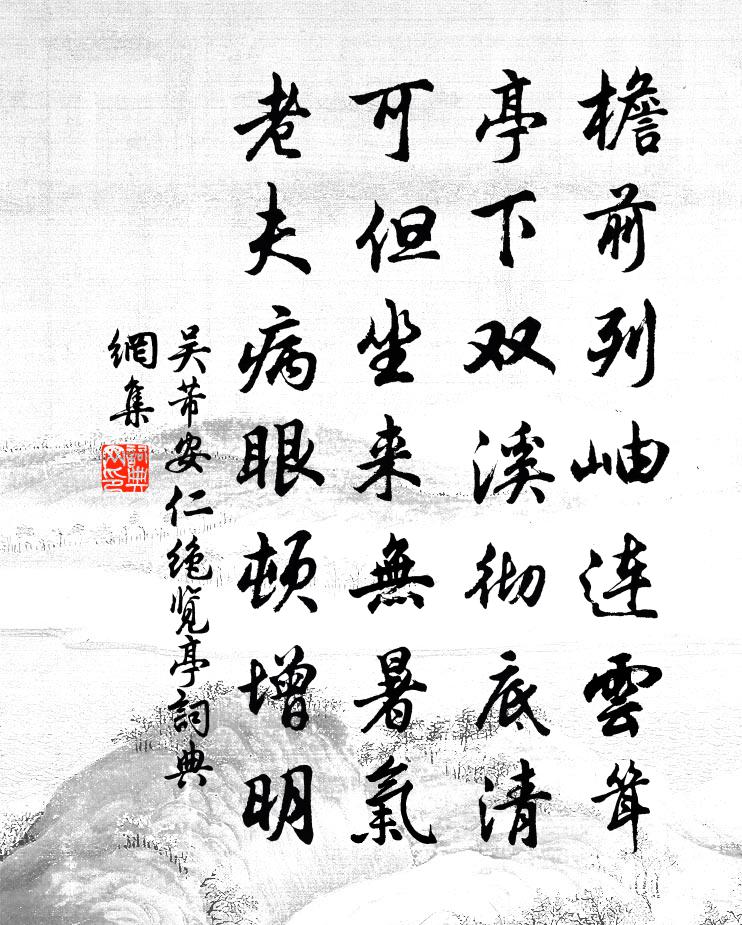 檐前列岫連雲耸
亭下双溪彻底清
可但坐来無暑氣
老夫病眼頓增明
吴芾安仁绝览亭詞典
網集
詞典
网印